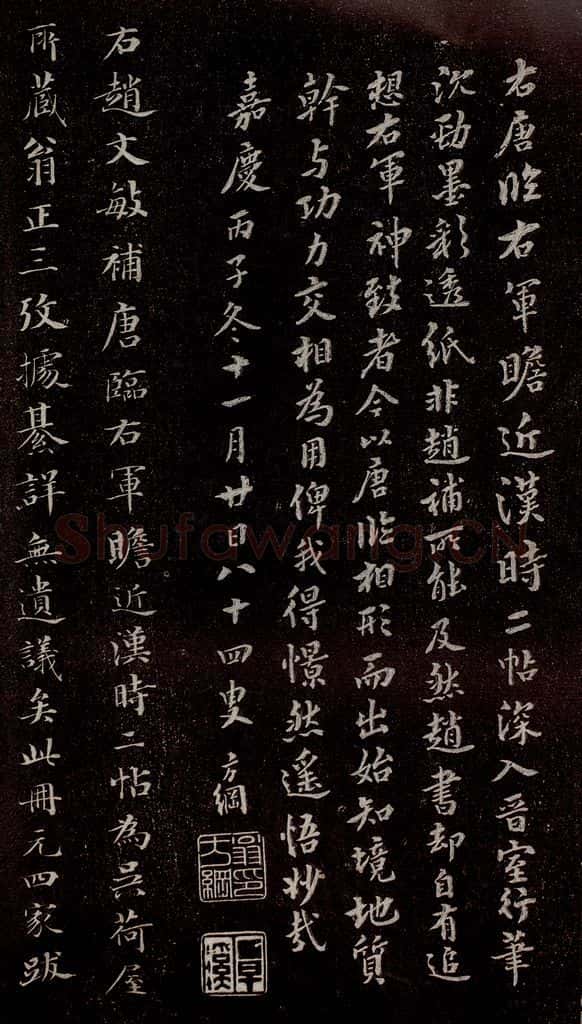 右唐臨右軍瞻近漢時二帖深入晉室行筆
沈勁墨彩透紙非趙補所能及然趙書却自有追
想右軍神致者今以唐臨相形而出始知境地質
幹与功力交相為用俾我得憬然遙悟妙哉
嘉慶丙子冬十一月廿日八十四叟方綱
翁方綱印
覃溪
右趙文敏補唐臨右軍瞻近漢時二帖為吳荷屋
所藏翁正三攷據綦詳無遺議矣此冊元四家跋
Shufawang.CN